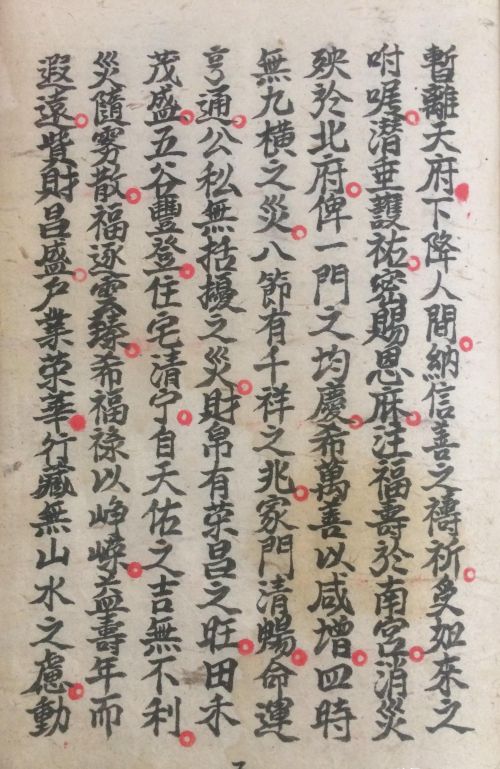 暫離天府下降人間納信善之禱祈受如來之
咐囑潛垂護祐密賜恩庥注福壽於南宮消災
殃於北府俾一門之均慶希萬善以咸增四時
無九橫之災八節有千祥之兆家門清暢命運
亨通公私無括擾之災財帛有荣昌之旺田禾
茂盛五谷豐登住宅清宁自天佑之吉無不利
災隨雰散福逐雲臻希福祿以峥嶸益壽年而
遐遠貲財昌盛戶業荣華行藏無山水之慮動